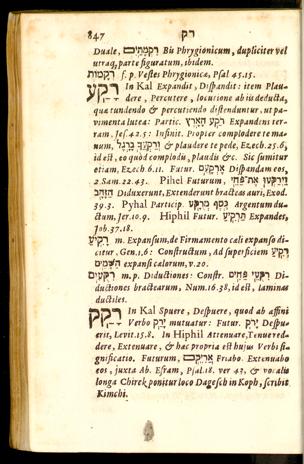 847 רק
Duale, רִקְמָתַיִם Bis Phrygionicum, dupliciter vel
utraq, parte figuratum, ibidem.
רְקָמוֹת f. p. Vestes Phrygionicæ, Psal 45.15.
רָקַע In Kal Expandit, Dispandit: item Plau-
dere, Percutere, locusione ab iis deducta,
quæ tundendo & percutiendo distenduntur, ut pa-
vimenta lutea: Partic. רֹקַע הָאָרֶץ Expandens ter-
ram. Jes. 42.5: Infinit. Propter complodere te ma-
num, וְרַקְעֲךָ בְּרֶגֶל & plaudere te pede, Ezech. 25.6,
id est, eo quòd complodis, plaudis &c. Sic sumitur
etiam, Ezech 6.11. Futur. אֶרְקָעֵם Dispandam eos,
2 Sam. 22.43. Pihel Futurum, וַיְרַקְּעוּ אֶת־פַּחֵי
הַזָּהָב Diduxerunt, Extenderunt bracteas auri, Exod.
39.3. Pyhal Particip. כֶּסֶף מְרֻקָּע Argentum du-
ctum, Jer. 10.9. Hiphil Futur. תַּרְקִיעַ Expandes,
Job. 37.18.
רָקִיעַ m. Expansum, de Firmamento cali expanso di-
citur, Gen. 1.6: Constructum, Ad superficiem רְקִיעַ
הַשָּׁמַיִם expansi cælorum, v. 20.
רִקֻּעִים m. p. Diductiones: Constr. רִקֻּעֵי פַחִים Di-
ductiones bractearum, Num. 16.38, id est, laminæ
ductiles.
רָקַק In Kal Spuere, Despuere, quod ab affini
Verbo יָרַק mutuatur: Futur. יָרֹק Despu-
erit, Levit. 15.8. In Hiphil Attenuare, Tenue red-
dere, Extenuare, & hæc propria est hujus Verbi si-
gnificatio. Futurum, אֲרִיקֵם Friabo Extenuabo
eos, juxta Ab. Esram, Psal. 18. ver 43, & vocalis
longa Chirek ponitur loco Dagesch in Koph, scribit
Kimchi.